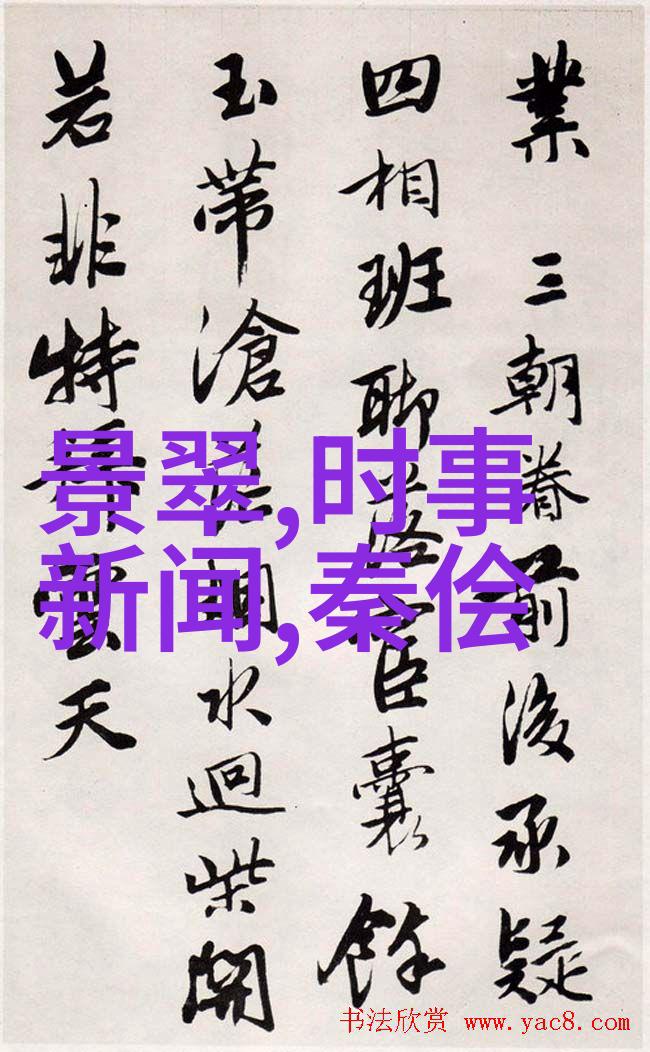 業 三朝眷前後承疑
四相班聊臣囊餘
玉帶滄湖水迴柴開
若非特天
景翠,时事
新闻,秦侩
书法欣赏 www.yac8.com